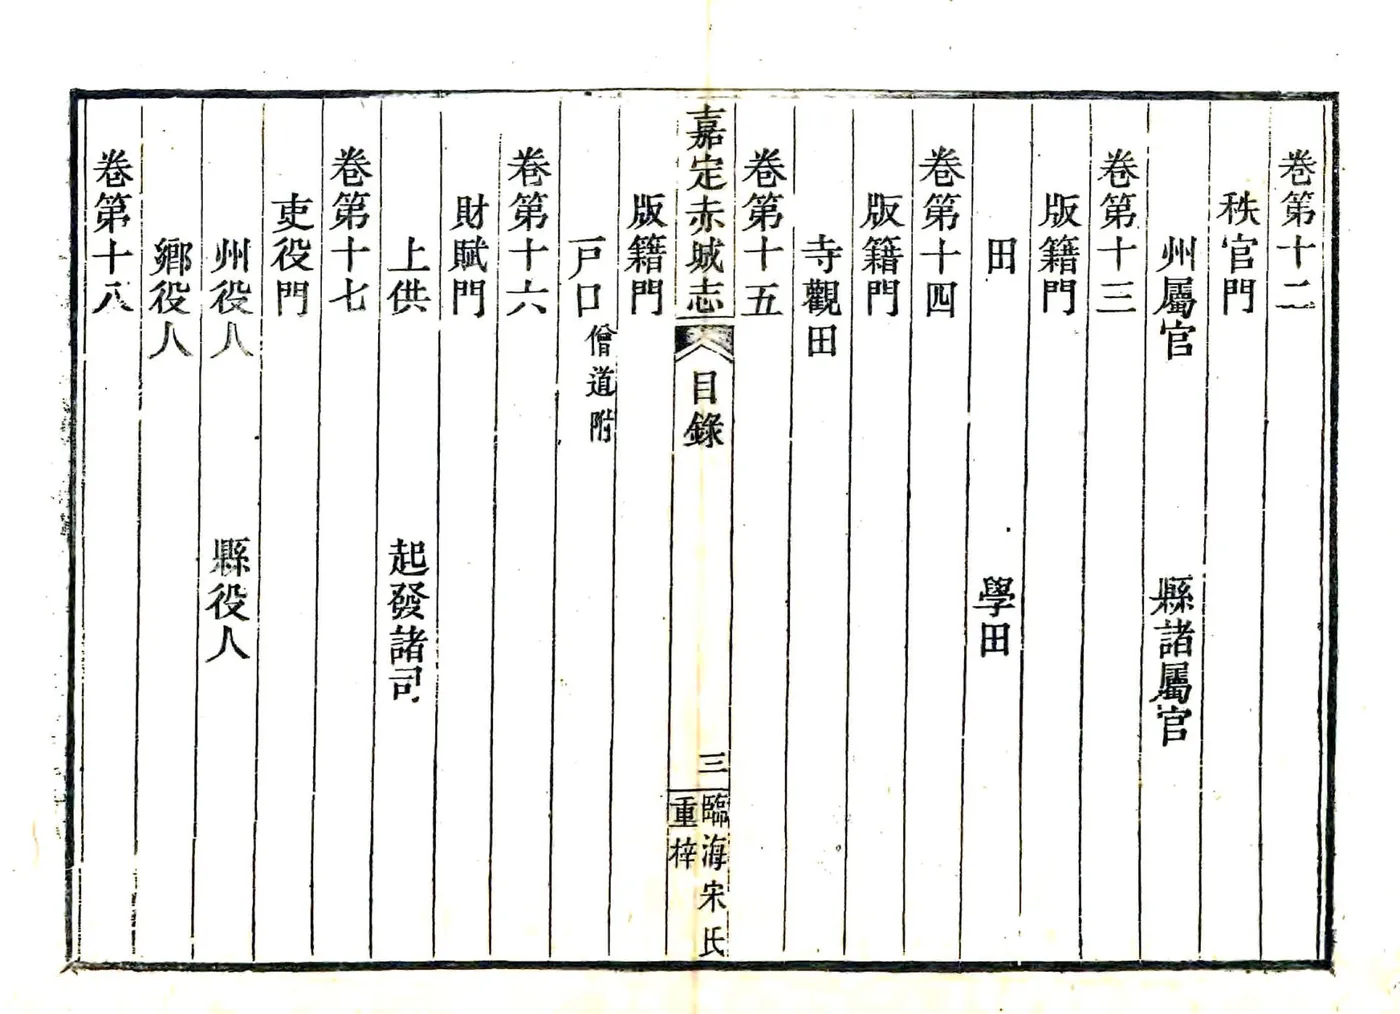 卷第十二
秩官門
州屬官　縣諸屬官
卷第十三
版籍門
田　學田
卷第十四
版籍門
寺觀田
卷第十五
嘉定赤城志　目錄　三　臨海宋氏重梓
版籍門
戸口僧道附
卷第十六
財賦門
上供　起發諸司
卷第十七
吏役門
州役人　縣役人
鄉役人
卷第十八